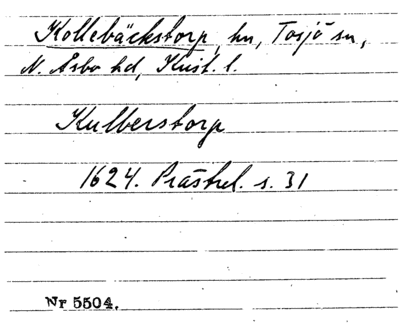 Kollebäckstorp, hn, Tosjö sn,
N. Åsbo hd, Krist. l.
Kulberstorp
1624. Prästrel. s. 31
Nr 5504.